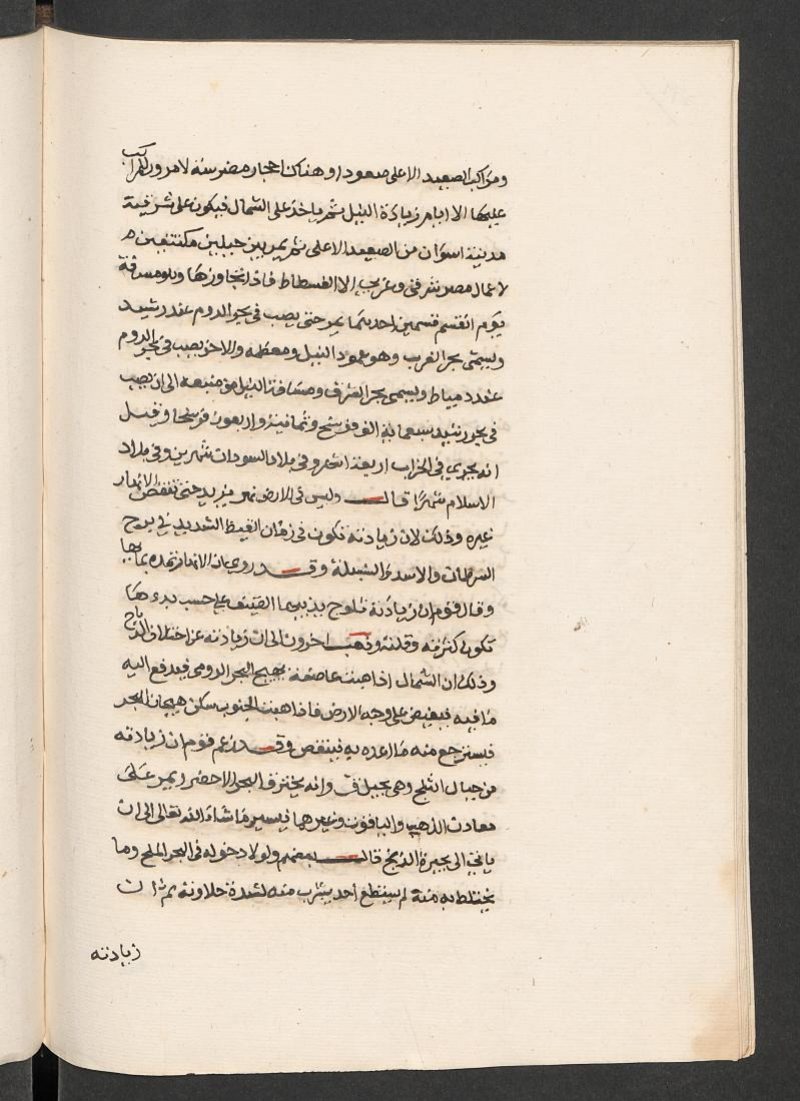 ومراكب الصعيد الاعلى صعودا وهناك احجار مضرسة لامرور للمراكب
عليها الا ايام زيادة النيل ثم ياخذ على الشمال فيكون على شرقية
مدينة اسوان من الصعيد الاعلى ثم يمر بين جبلين مكتنفين
لاعمال مصر شرقى وغربى الا الفسطاط فاذا تجاوزها وبلو مسافة
يوم انقسم قسمين احديهما يمر حتى يصب فى بحر الروم عند رشيد
ويسمى بحر الغرب وهو عمود النيل ومعظمه والاخر يصب فى بحر الروم
عند دمياط ويسمى بحر الشرق ومسافة النيل من منبعه الى ان يصب
فى بحر رشيد سبعماية الف فرسخ وثمانية واربعون فرسخا وقيل
انه يجرى فى الخراب اربعة اشهر وفى بلاد السودان شهرين وفى بلاد
الاسلام شهرًا قال وليس فى الارض نهر يزيد حتى تنقص الانهار
غيره وذلك لان زيادته تكون فى زمان القيظ الشديد فى برج
السرطان والاسد والسنبلة وقد روى ان الانهار تمده بمايها
وقال قوم ان زيادته ثلوج يذيبها القيظ على حسب بدءها
تكون كثرته وقلته وذهب اخرون الى ان زيادته عن اختلاف الرياح
وذلك ان الشمال اذا هبت عاصفة يهيج البحر الرومى فيدفع اليه
ما فيه فيفيض على وجه الارض فاذا هبت الجنوب سكن هيجان البحر
فيسترجع منه ما اعده به فينقص وقد زعم قوم ان زيادته
من جبال الثلج وهى بجبل ق وانه يخترق البحر الاخضر ويمر على
معادن الذهب والياقوت وغيرهما فيسير ما شاء الله تعالى الى ان
ياتى الى بحيرة الزنج قال بعضهم ولولا دخوله فى البحر الملح وما
يختلط به منه لم يستطع احد يشرب منه لشدة حلاوته ثم ان
زيادته